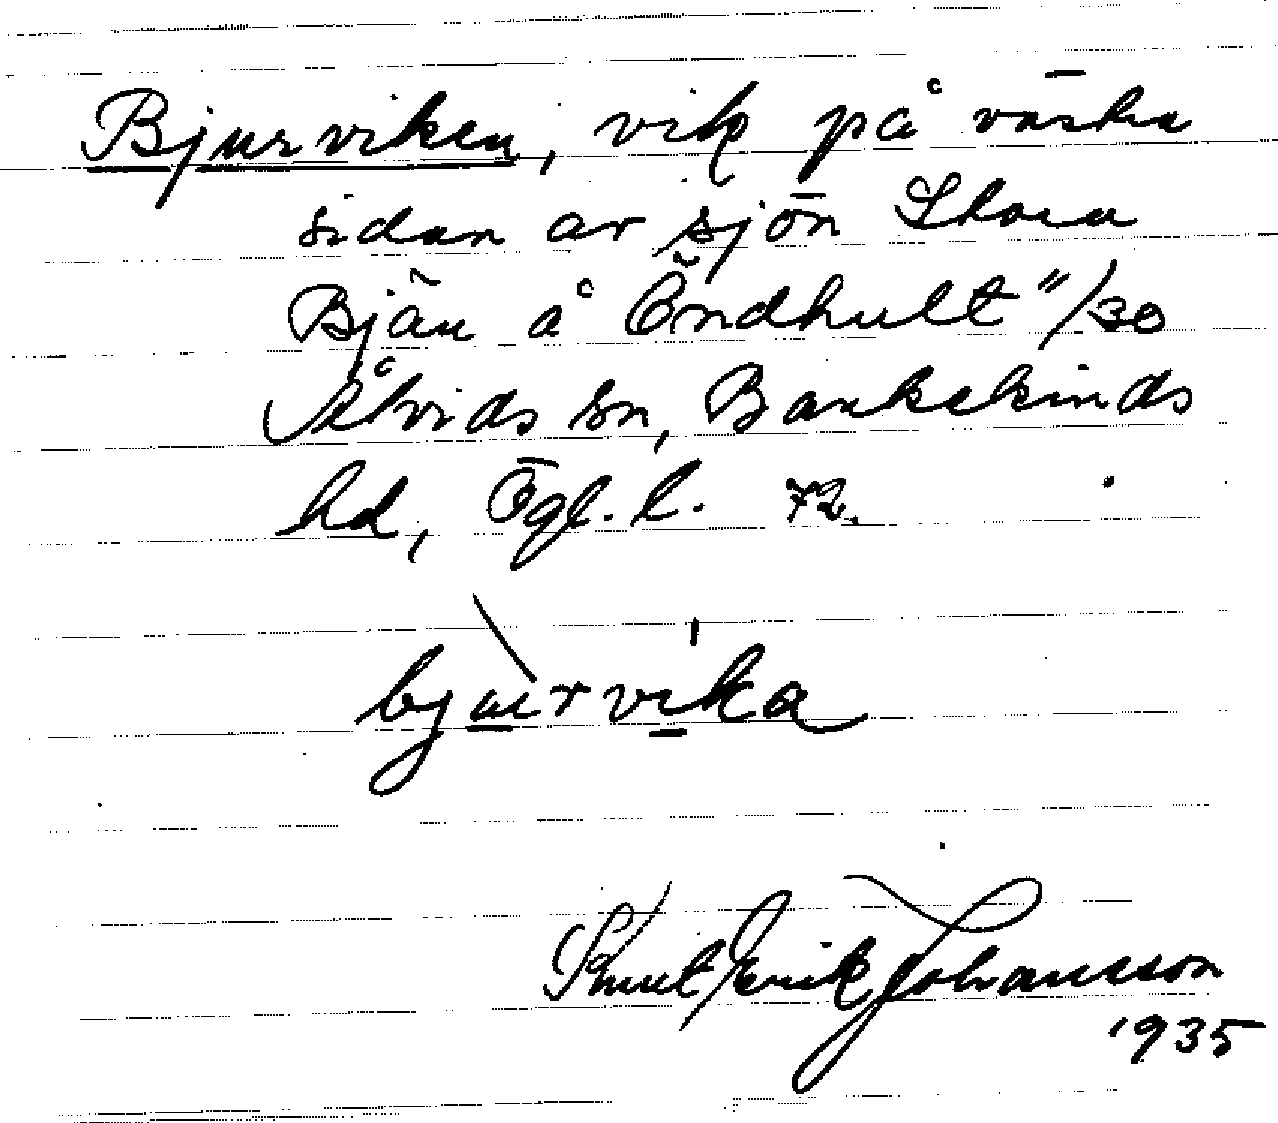 Bjurviken, vik på västra
sidan av sjön Stora
Bjän å Öndhult "/30
Åtvids sn, Bankekinds
hd, Ögl. l. 72.
bjurvika
Knut Erik Johansson
1935